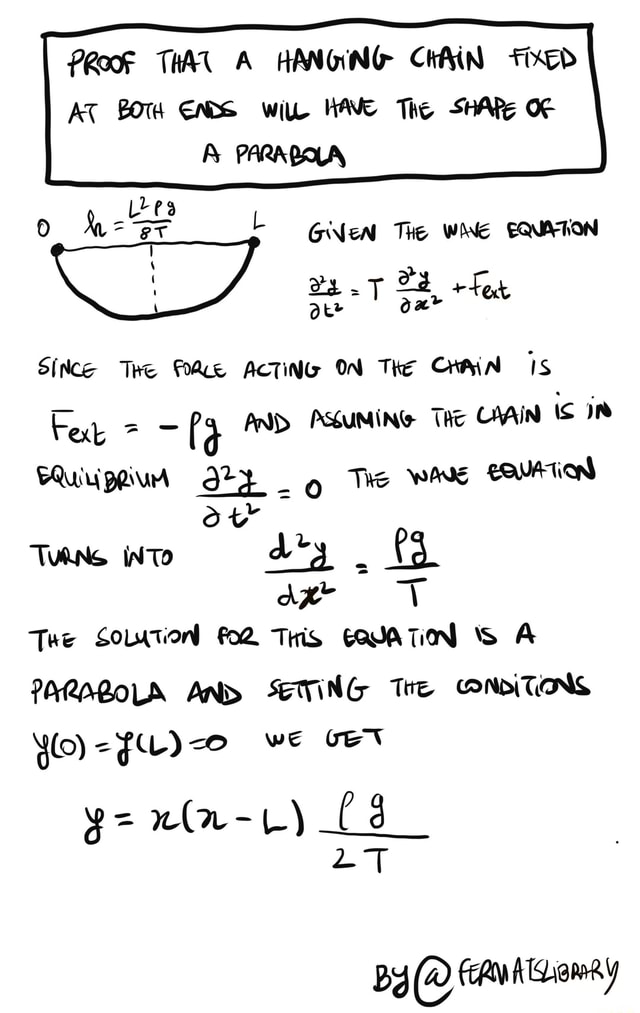 PROOF THAT A HANGING CHAIN FIXED
AT BOTH ENDS WILL HAVE THE SHAPE OF
A PARABOLA
O h = L²ρg/8T L
GIVEN THE WAVE EQUATION
∂²y/∂t² = T ∂²y/∂x² + Fext
SINCE THE FORCE ACTING ON THE CHAIN IS
Fext = -ρg AND ASSUMING THE CHAIN IS IN
EQUILIBRIUM ∂²y/∂t² = 0 THE WAVE EQUATION
TURNS INTO d²y/dx² = ρg/T
THE SOLUTION FOR THIS EQUATION IS A
PARABOLA AND SETTING THE CONDITIONS
y(0) = y(L) = 0 WE GET
y = x(x - L) ρg/2T
BY @FERMATSLIBRARY